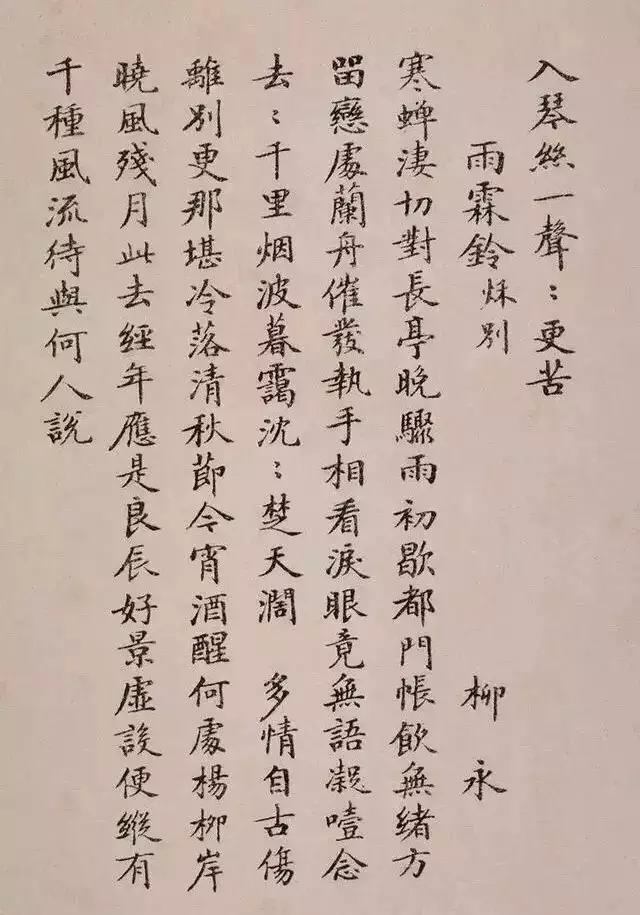 入琴絲一聲〻更苦
雨霖鈴 秌別 柳永
寒蟬淒切對長亭晚驟雨初歇都門帳飲無緒方
留戀處蘭舟催發執手相看淚眼竟無語凝噎念
去〻千里烟波暮靄沈〻楚天濶 多情自古傷
離別更那堪冷落清秋節今宵酒醒何處楊柳岸
曉風殘月此去經年應是良辰好景虛設便縱有
千種風流待與何人說